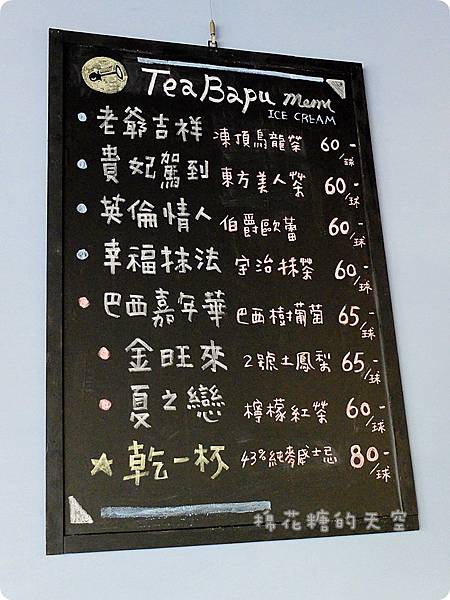 TeaBapu menu
ICE CREAM
老爺吉祥 凍頂烏龍茶 60-/球
貴妃駕到 東方美人茶 60-/球
英倫情人 伯爵歐蕾 60-/球
幸福抹法 宇治抹茶 60-/球
巴西嘉年華 巴西樹葡萄 65-/球
金旺來 2號土鳳梨 65-/球
夏之戀 檸檬紅茶 60-/球
乾一杯 43%純麥威士忌 80-/球
棉花糖的天空